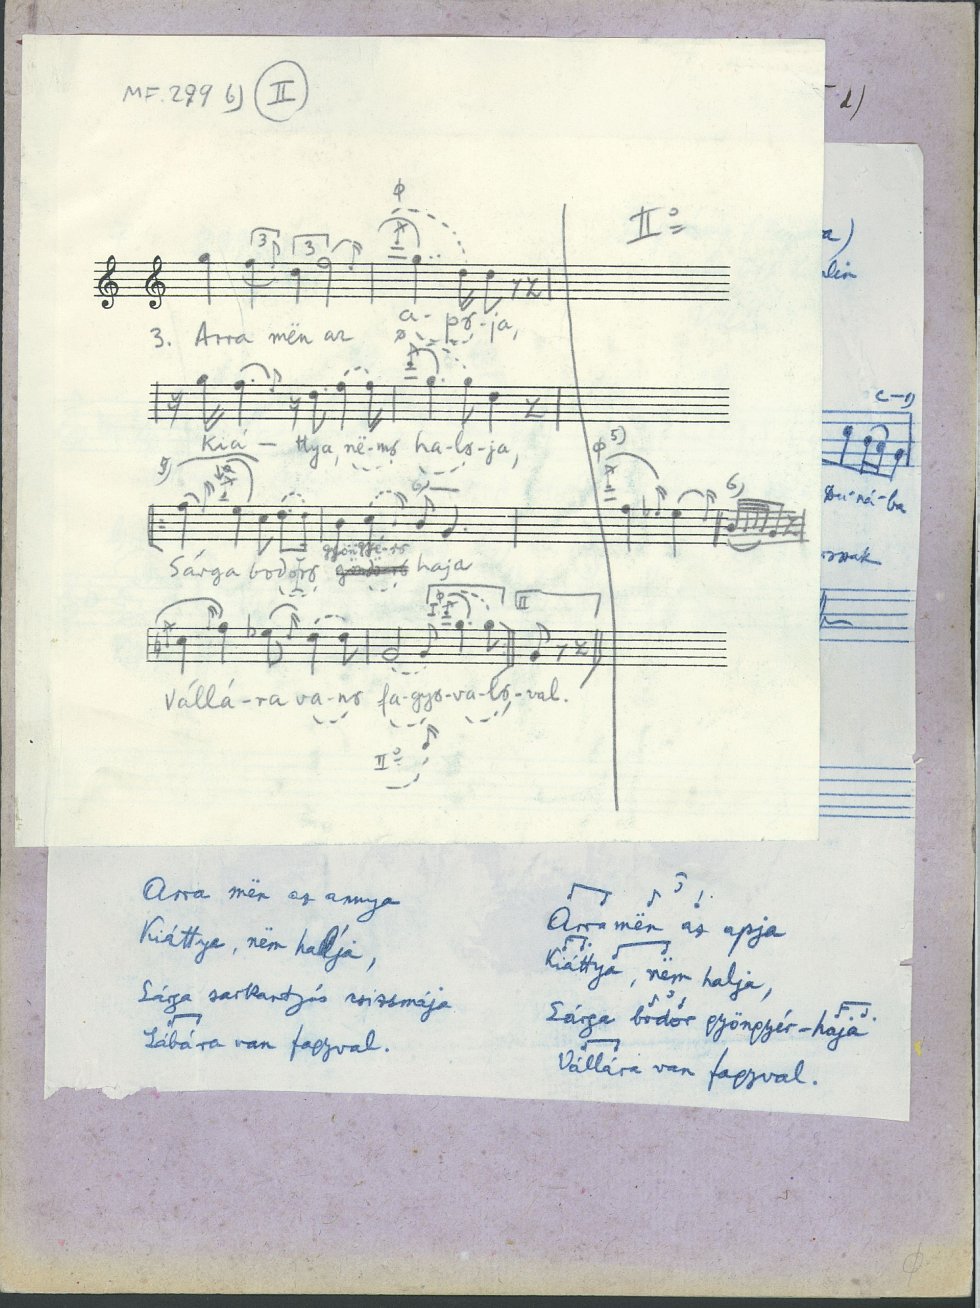 MF. 299 b) II
II°
3. Arra mën az a-po-ja,
Kiá - ttya, në-mə ha-lə-ja,
5)
6)
5)
6)
Sárga bodorə gyöngyé-rə haja
I II
Vállá-ra va-nə fa-gyə-va-lə-val.
II°
a)
c-1)
Du-ná-ba
Arra mën az annya
Kiáttya, nëm halja,
Sárga sarkantyús csizsmája
Lábára van fagyval.
Arra mën az apja
Kiáttya, nëm halja,
Sárga bodor gyöngyér-haja
Vállára van fagyval.